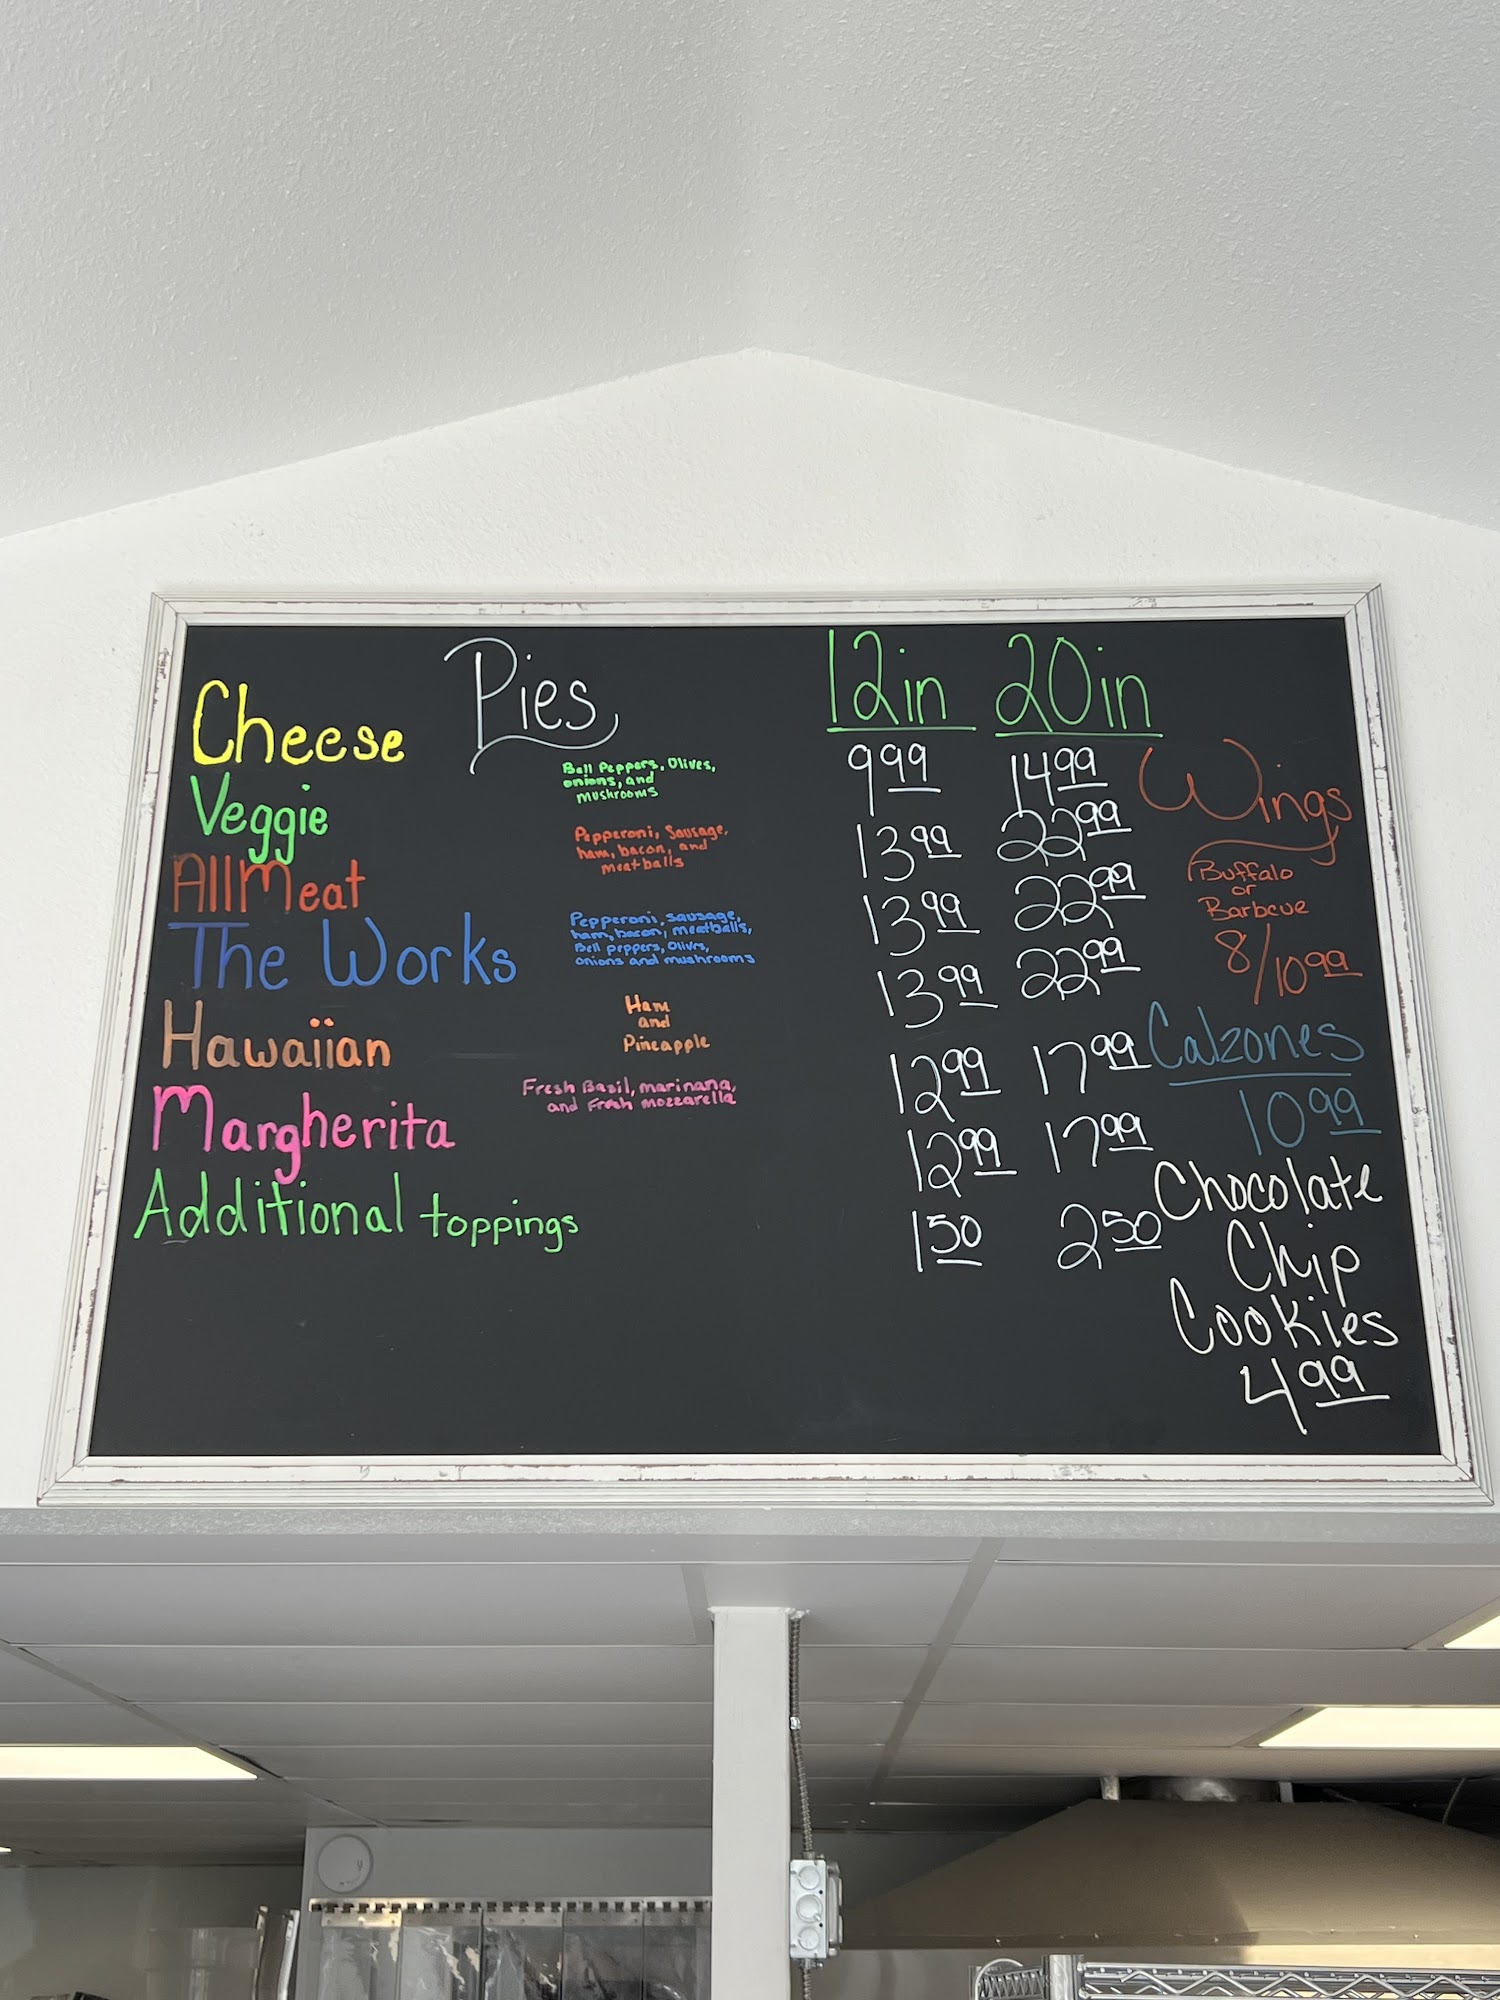 Pies
12in 20in
Cheese 9.99 14.99
Veggie
Bell Peppers, Olives,
onions, and
mushrooms
13.99 22.99
All Meat
Pepperoni, Sausage,
ham, bacon, and
meatballs
13.99 22.99
The Works
Pepperoni, sausage,
ham, bacon, meatballs,
Bell peppers, Olives,
onions and mushrooms
13.99 22.99
Hawaiian
Ham
and
Pineapple
12.99 17.99
Margherita
Fresh Basil, marinana,
and Fresh mozzarella
12.99 17.99
Additional toppings 1.50 2.50
Wings
Buffalo
or
Barbcue
8/10.99
Calzones
10.99
Chocolate
Chip
Cookies
4.99